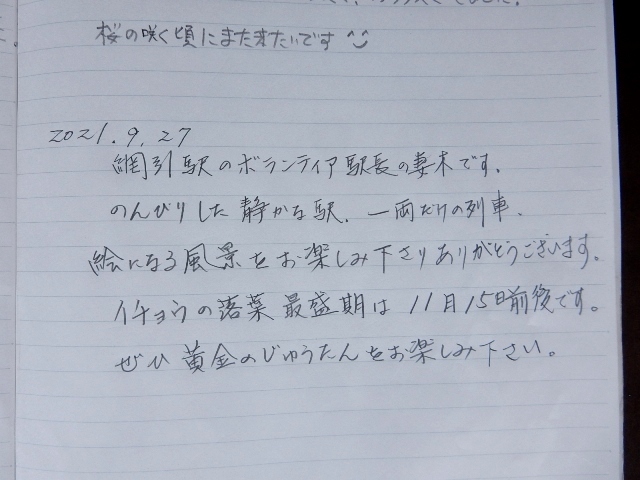 桜の咲く頃にまた来たいです^^
2021.9.27
網引駅のボランティア駅長の妻木です.
のんびりした静かな駅.一両だけの列車.
絵になる風景をお楽しみ下さりありがとうございます.
イチョウの落葉最盛期は11月15日前後です。
ぜひ黄金のじゅうたんをお楽しみ下さい。